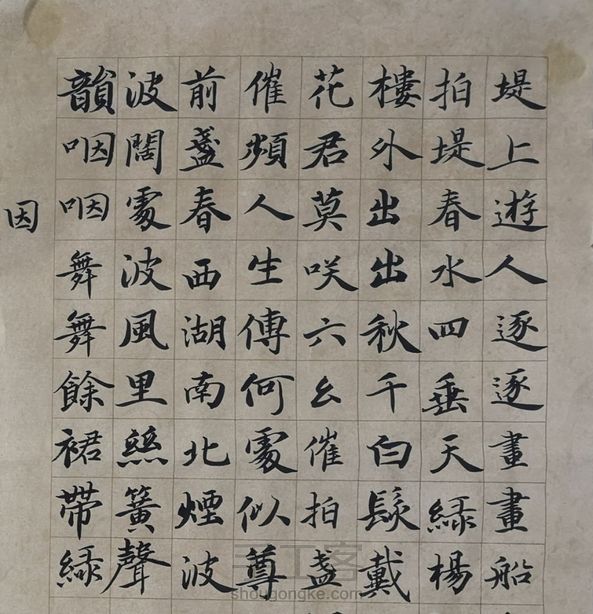 堤上遊人逐逐畫畫船
拍堤春水四垂天綠楊
樓外出出秋千白髮戴
花君莫咲六幺催拍盞
催頻人生傅何處似尊
前盞春西湖南北煙波
波闊處波風里絲簧聲
韻咽咽舞舞餘裙帶綠
因
手工客
shougongke.com